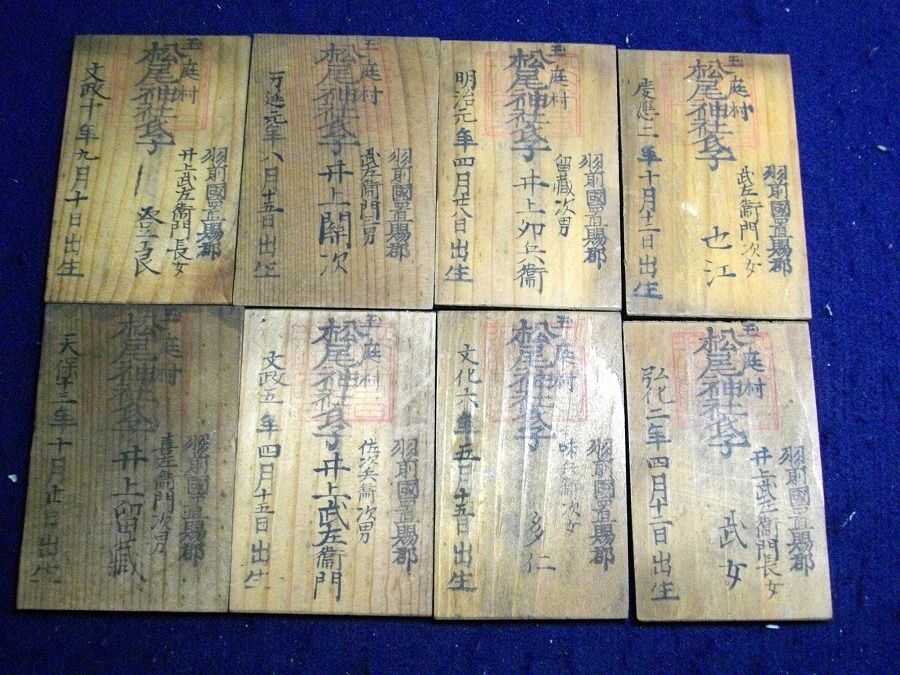 玉庭村
羽前國置賜郡
松尾神社氏子
武左衞門次女
也江
慶應二年十月十二日出生
玉庭村
羽前國置賜郡
松尾神社氏子
留藏次男
井上卯兵衞
明治元年四月廿八日出生
玉庭村
羽前國置賜郡
松尾神社氏子
武左衞門二男
井上關次
万延元年八月十五日出生
玉庭村
羽前國置賜郡
松尾神社氏子
井上武左衞門長女
文政十年九月十日出生
玉庭村
羽前國置賜郡
松尾神社氏子
井上武左衞門長女
武女
弘化二年四月十二日出生
玉庭村
羽前國置賜郡
松尾神社氏子
次女
多仁
文化六年五月十五日出生
玉庭村
羽前國置賜郡
松尾神社氏子
佐次兵衞次男
井上武左衞門
文政五年四月十五日出生
玉庭村
羽前國置賜郡
松尾神社氏子
喜左衞門次男
井上留藏
天保十三年十月廿日出生